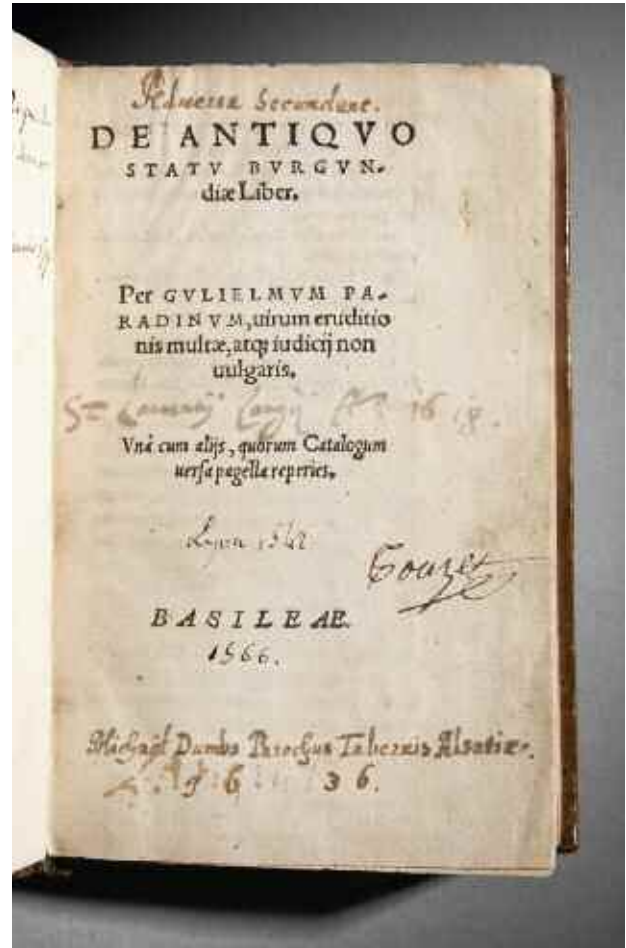 Secundae.
DE ANTIQVO
STATV BVRGVN-
diæ Liber.
Per GVLIELMVM PA-
RADINVM, uirum eruditio
nis multæ, atq; iudicij non
uulgaris.
16 18.
Vnà cum alijs, quorum Catalogum
uersa pagella reperies.
1542
Gouget
BASILEAE.
1566.
Michael Dumbs Parochus Tabernis Alsatiæ.
36.